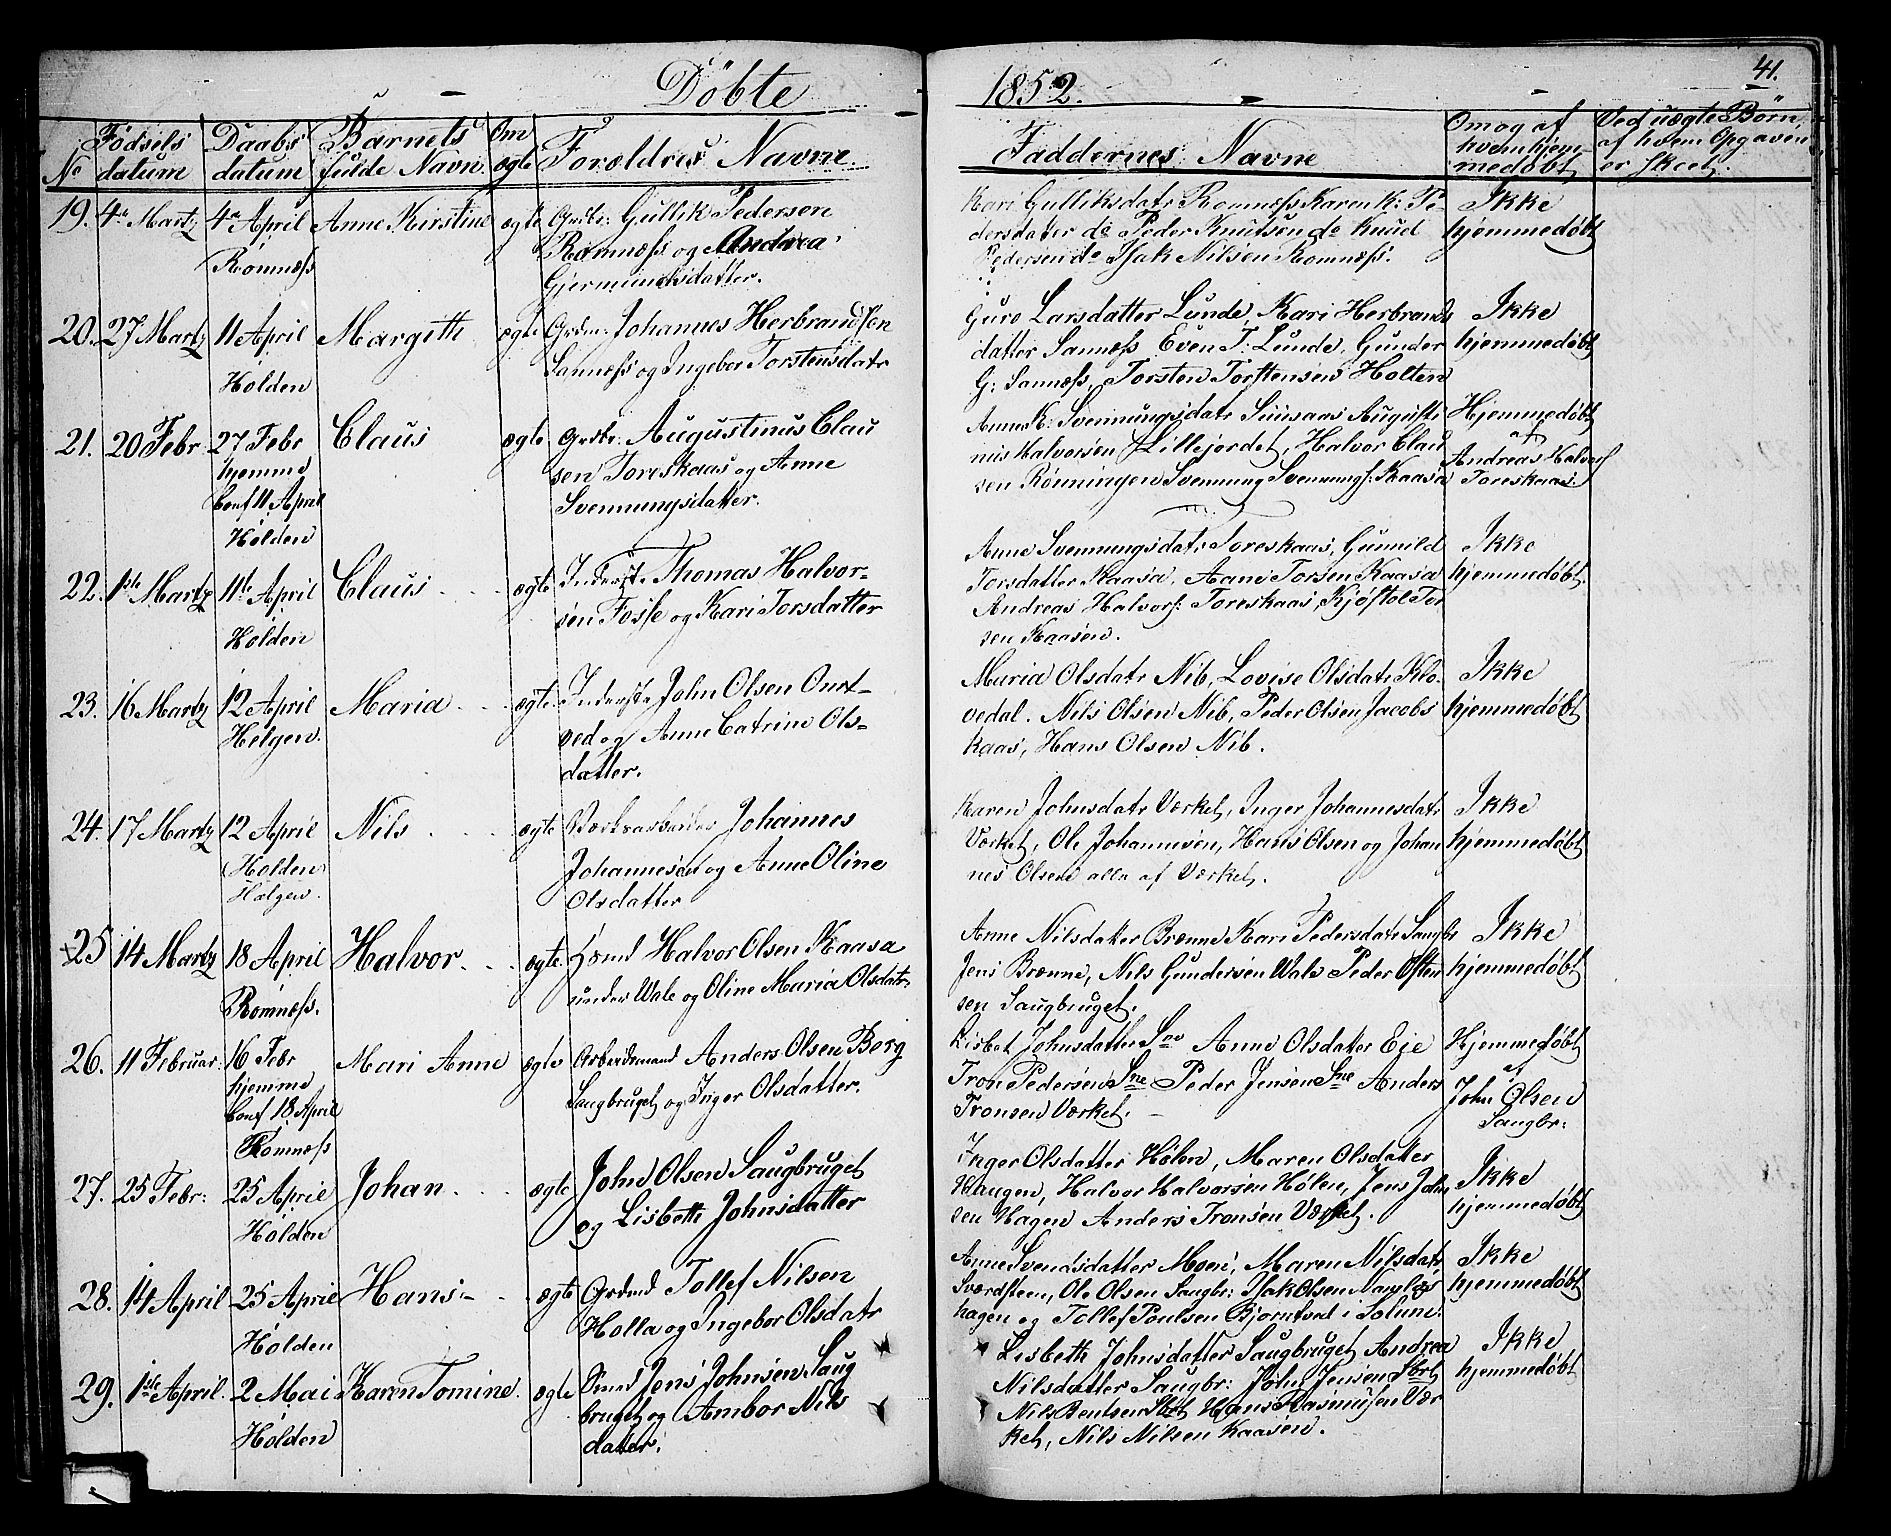 Döbte
1852.
41.
No
Födsels datum
Daabs datum
Barnets fulde Navn.
Om ægte
Forældres Navne
Faddernes Navne
Om og af hvem hjemmedøbt
Ved uægte Børn, af hvem Opgaven er skeet.
19. 4de Martz 4de April Romnæss Anne Kirstine ægte
Grdbr: Gullik Pedersen
Romnæss og Andrea
Gjermundsdatter.
Kari Gulliksdatr Romnæss Karen K: Pe-
dersdatter do Peder Knutsen do Knud
Pedersen do Isak Nilsen Romnæss.
Ikke
hjemmedøbt
20. 27 Martz 11 April Holden Margith ægte
Grdm: Johannes Herbrandsen
Sannæss og Ingebor Torstensdatr
Guro Larsdatter Lunde, Kari Herbrands
datter Sannæss Even T: Lunde, Gunder
G: Sannæss, Torsten Torstensen Holten
Ikke
hjemmedøbt
21. 20 Febr 27 Febr hjemme Conf 11 April Holden Claus ægte
Grdbr: Augustinus Clau
sen Toreskaas og Anne
Svennungsdatter.
Anne K: Svennungsdatr Augusti
nus Halvorsen Lillejordet, Halvor Clau
sen Rønningen Svennung Svennungs: Kaasa
Hjemmedøbt
af
Andreas Halvors
Toreskaas
22. 1ste Martz 11te April Holden Claus ægte
Inderst: Thomas Halvor-
sen Fosse og Kari Torsdatter
Anne Svennungsdatr Toreskaas, Gunnild
Torsdatter Kaasa, Aani Torsen Kaasa
Andreas Halvors: Toreskaas, Kjøstol Tor
sen Kaasen.
Ikke
hjemmedøbt
23. 16 Martz 12 April Helgen. Maria ægte
Inderste John Olsen
og Anne Catrine Ols-
datter.
Maria Olsdatr Nib, Lovise Olsdatr Klo
vedal. Nils Olsen Nib, Peder Olsen Jacobs
kaas, Hans Olsen Nib.
Ikke
hjemmedøbt
24. 17 Martz 12 April Holden Helgen. Nils ægte
Værksarbeider Johannes
Johannesen og Anne Oline
Olsdatter
Karen Johnsdatr Værket, Inger Johannesdatr
Værket, Ole Johannesen, Hans Olsen og Johan
nes Olsen alle af Værket.
Ikke
hjemmedøbt
25 14 Martz 18 April Romnæss. Halvor ægte
Halvor Olsen Kaasa
under Wale og Oline Maria Olsdatr
Anne Nilsdatter Brenne Kari Pedersdatr Saugbr
Jens Brenne, Nils Gundersen Wale Peder Østen
sen Saugbruget.
Ikke
hjemmedøbt
26. 11 Februar 16 Febr hjemme Conf 18 April Romnæss Mari Anne ægte
Arbeidsmand Anders Olsen Borg
Saugbruget og Inger Olsdatter.
Lisbet Johnsdatter Anne Olsdatter Eie
Tron Pedersen Peder Jensen Anders
Tronsen Værket.
Hjemmedøbt
af
John Olsen
Saugbr:
27. 25 Febr: 25 April Holden Johan ægte
John Olsen Saugbruget
og Lisbeth Johnsdatter
Inger Olsdatter Hølen, Maren Olsdatter
Haugen, Halvor Halvorsen Hølen, Jens John
sen Hagen Anders Tronsen Værket.
Ikke
hjemmedøbt
28. 14 April 25 April Holden Hans ægte
Grdmd Tollef Nilsen
Holla og Ingebor Olsdatr
Anne Svendsdatter Moen, Maren Nilsdatr
Sværdsteen, Ole Olsen Saugbr: Isak Olsen
hagen og Tollef Poulsen Bjorntved i Solum.
Ikke
hjemmedøbt
29. 1ste April. 2 Mai Holden Karen Tomine. ægte
Smed Jens Johnsen Saug
bruget og Ambor Nils
datter.
Lisbeth Johnsdatter Saugbruget Andrea
Nilsdatter Saugbr: John Jensen
Nils Bentsen Hans Rasmusen Vær
ket, Nils Nilsen Kaasen.
Ikke
hjemmedøbt